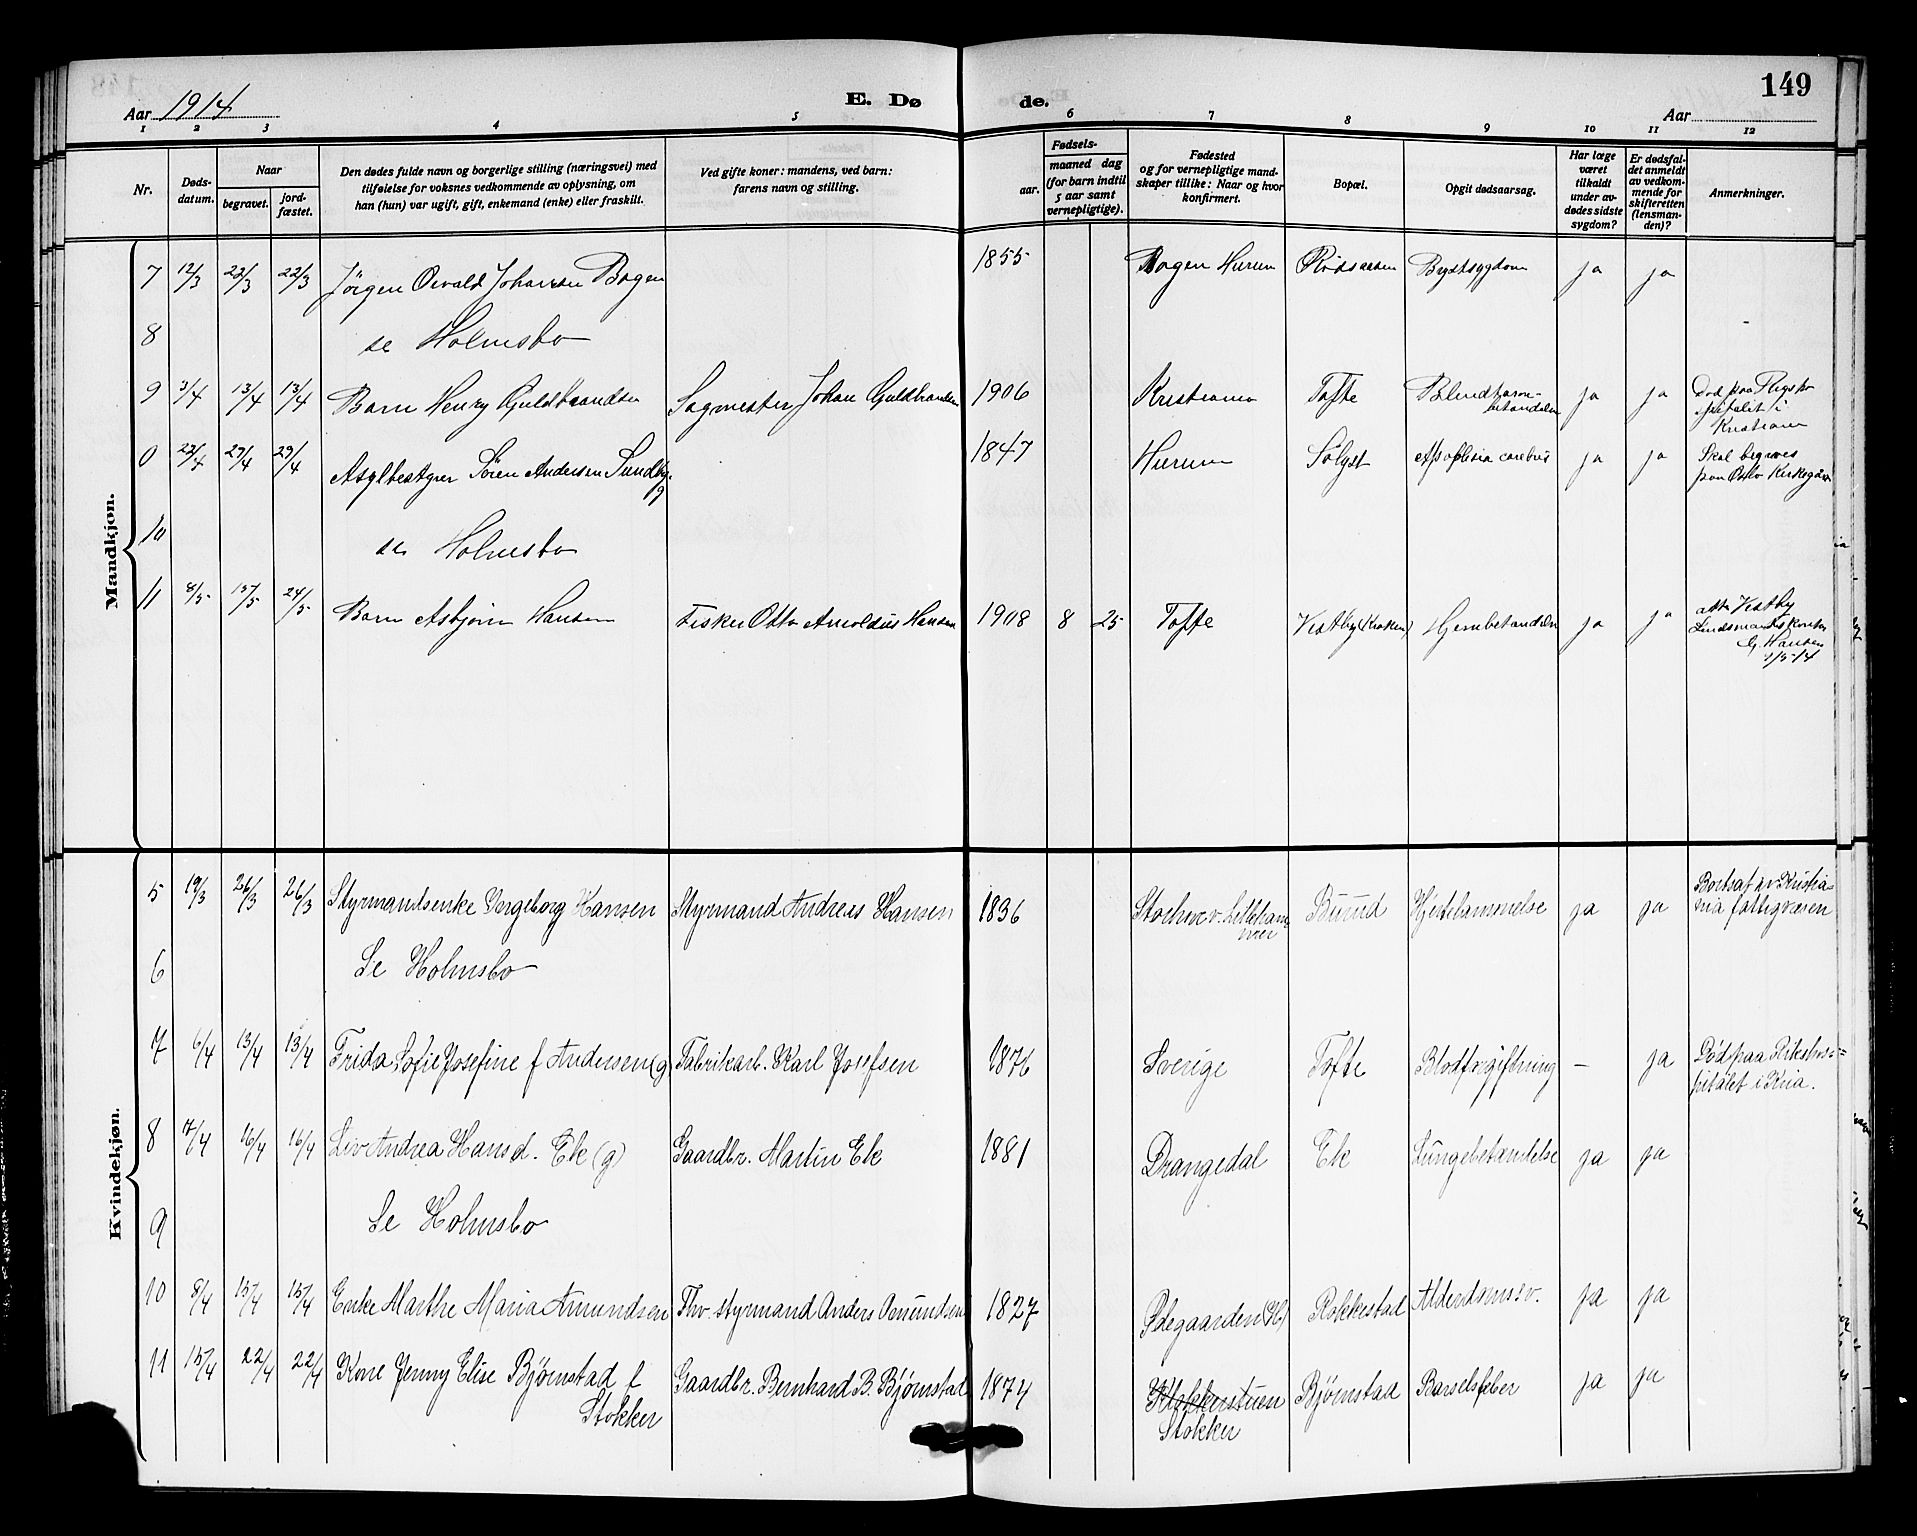 149
Aar 1914
E. Dø
de.
Aar
1 2 3 4 5 6 7 8 9 10 11 12
Nr.
Døds-
datum.
Naar
begravet.
jord-
fæstet.
Den dødes fulde navn og borgerlige stilling (næringsvei) med
tilføielse for voksnes vedkommende av oplysning, om
han (hun) var ugift, gift, enkemand (enke) eller fraskilt.
Ved gifte koner: mandens, ved barn:
farens navn og stilling.
Fødsels-
aar.
maaned dag
(for barn indtil
5 aar samt
vernepligtige).
Fødested
og for vernepligtige mand-
skaper tillike: Naar og hvor
konfirmert.
Bopæl.
Opgit dødsaarsag.
Har læge
været
tilkaldt
under av-
dødes sidste
sygdom?
Er dødsfal-
det anmeldt
av vedkom-
mende for
skifteretten
(lensman-
den)?
Anmerkninger.
Mandkjøn.
7 12/3 22/3 22/3 Jörgen Osvald Johansen Bogen 1855 Bogen Hurum Rødsaasen Brystsygdom ja ja
8 se Holmsbo
9 3/4 13/4 13/4 Barn Henry Guldbrandsen Sagmester Johan Guldbrandsen 1906 Kristiania Tofte Blindtarm-
betændelse ja ja Död paa Rigsho
spitalet i
Kristiania
0 22/4 29/4 29/4 Asylbestyrer Sören Andersen Sundby.
g 1847 Hurum Sölyst Apoplexia cerebri ja ja Skal begraves
paa Oslo Kirkegaard
10 se Holmsbo
11 8/5 15/5 24/5 Barn Asbjörn Hansen Fisker Otto Arnoldus Hansen 1908 8 25 Tofte Vestby (Kroken) Hjernbetændelse ja ja att. Vestby
Lensmandskontor
G. Hansen
Kvindekjøn.
5 19/3 26/3 26/3 Styrmandsenke Ingeborg Hansen Styrmand Andreas Hansen 1836 Storhove v. Lilleham
mer Burud Hjertelammelse ja ja Bortsat av Kristia-
nia fattigvæsen
6 Se Holmsbo
7 6/4 13/4 13/4 Frida Sofie Josefine f Andersen (g) Fabrikarb. Karl Josefsen 1876 Sverige Tofte Blodforgiftning - ja Död paa Rikshos-
pitalet i Kria.
8 7/4 16/4 16/4 Liv Andrea Hansd. Ek (g) Gaardbr. Martin Ek 1881 Drangedal Ek Lungebetændelse ja ja
9 Se Holmsbo
10 8/4 15/4 15/4 Enke Marthe Maria Amundsen Fhv. styrmand Anders Amundsen 1827 Ødegaarden (H) Rokkestad Alderdomssv. ja ja
11 15/4 22/4 22/4 Kone Jenny Elise Bjørnstad f
Stokker Gaardbr. Bernhard B. Bjørnstad 1874 Klokkerstuen
Stokker Bjørnstad Barselfeber ja ja